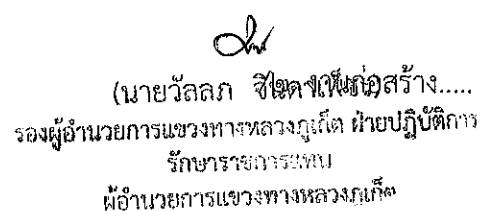 (นายวัลลภ ก่อสร้าง.....
รองผู้อำนวยการแขวงทางหลวงภูเก็ต ฝ่ายปฏิบัติการ
รักษาราชการแทน
ผู้อำนวยการแขวงทางหลวงภูเก็ต